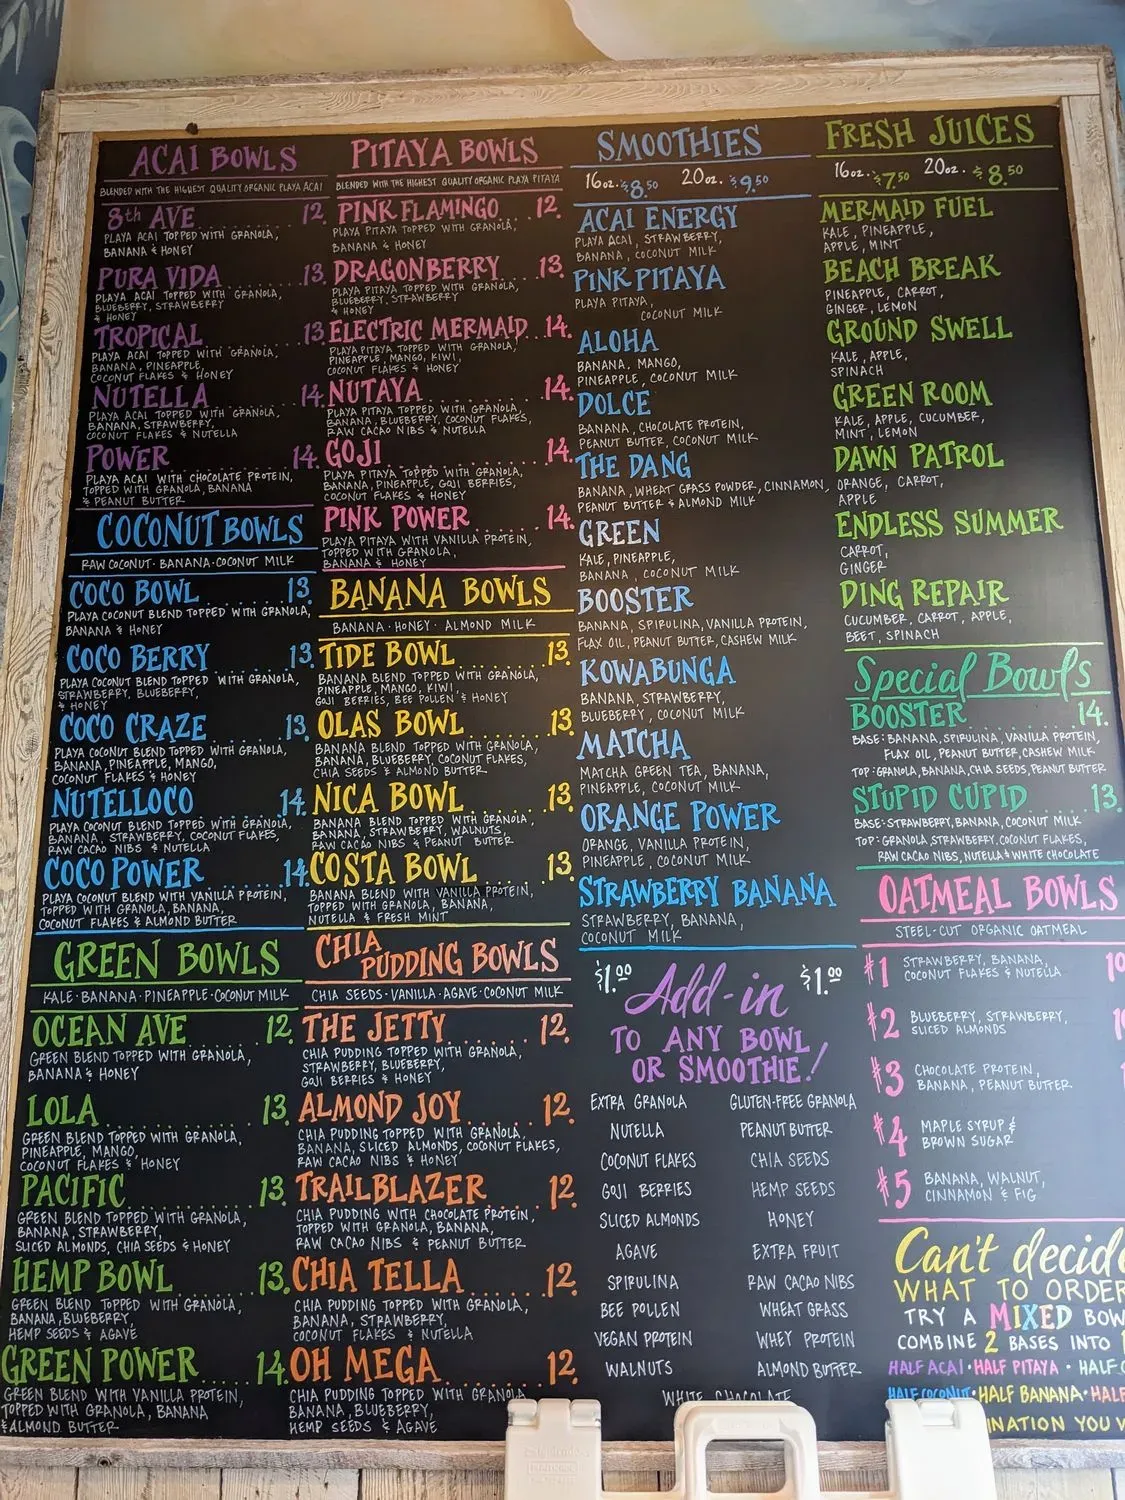 ACAI BOWLS
BLENDED WITH THE HIGHEST QUALITY ORGANIC PLAYA ACAI
8th AVE 12.
PLAYA ACAI TOPPED WITH GRANOLA,
BANANA & HONEY
PURA VIDA 13.
PLAYA ACAI TOPPED WITH GRANOLA,
BLUEBERRY, STRAWBERRY
& HONEY
TROPICAL 13.
PLAYA ACAI TOPPED WITH GRANOLA,
BANANA, PINEAPPLE,
COCONUT FLAKES & HONEY
NUTELLA 14.
PLAYA ACAI TOPPED WITH GRANOLA,
BANANA, STRAWBERRY,
COCONUT FLAKES & NUTELLA
POWER 14.
PLAYA ACAI WITH CHOCOLATE PROTEIN,
TOPPED WITH GRANOLA, BANANA
& PEANUT BUTTER
COCONUT BOWLS
RAW COCONUT · BANANA · COCONUT MILK
COCO BOWL 13.
PLAYA COCONUT BLEND TOPPED WITH GRANOLA,
BANANA & HONEY
COCO BERRY 13.
PLAYA COCONUT BLEND TOPPED WITH GRANOLA,
STRAWBERRY, BLUEBERRY,
& HONEY
COCO CRAZE 13.
PLAYA COCONUT BLEND TOPPED WITH GRANOLA,
BANANA, PINEAPPLE, MANGO,
COCONUT FLAKES & HONEY
NUTELLOCO 14.
PLAYA COCONUT BLEND TOPPED WITH GRANOLA,
BANANA, STRAWBERRY, COCONUT FLAKES,
RAW CACAO NIBS & NUTELLA
COCO POWER 14.
PLAYA COCONUT BLEND WITH VANILLA PROTEIN,
TOPPED WITH GRANOLA, BANANA,
COCONUT FLAKES & ALMOND BUTTER
GREEN BOWLS
KALE · BANANA · PINEAPPLE · COCONUT MILK
OCEAN AVE 12.
GREEN BLEND TOPPED WITH GRANOLA,
BANANA & HONEY
LOLA 13.
GREEN BLEND TOPPED WITH GRANOLA,
PINEAPPLE, MANGO,
COCONUT FLAKES & HONEY
PACIFIC 13.
GREEN BLEND TOPPED WITH GRANOLA,
BANANA, STRAWBERRY,
SLICED ALMONDS, CHIA SEEDS & HONEY
HEMP BOWL 13.
GREEN BLEND TOPPED WITH GRANOLA,
BANANA, BLUEBERRY,
HEMP SEEDS & AGAVE
GREEN POWER 14.
GREEN BLEND WITH VANILLA PROTEIN,
TOPPED WITH GRANOLA, BANANA
& ALMOND BUTTER
PITAYA BOWLS
BLENDED WITH THE HIGHEST QUALITY ORGANIC PLAYA PITAYA
PINK FLAMINGO 12.
PLAYA PITAYA TOPPED WITH GRANOLA,
BANANA & HONEY
DRAGONBERRY 13.
PLAYA PITAYA TOPPED WITH GRANOLA,
BLUEBERRY, STRAWBERRY
& HONEY
ELECTRIC MERMAID 14.
PLAYA PITAYA TOPPED WITH GRANOLA,
PINEAPPLE, MANGO, KIWI,
COCONUT FLAKES & HONEY
NUTAYA 14.
PLAYA PITAYA TOPPED WITH GRANOLA,
BANANA, BLUEBERRY, COCONUT FLAKES,
RAW CACAO NIBS & NUTELLA
GOJI 14.
PLAYA PITAYA TOPPED WITH GRANOLA,
BANANA, PINEAPPLE, GOJI BERRIES,
COCONUT FLAKES & HONEY
PINK POWER 14.
PLAYA PITAYA WITH VANILLA PROTEIN,
TOPPED WITH GRANOLA,
BANANA & HONEY
BANANA BOWLS
BANANA · HONEY · ALMOND MILK
TIDE BOWL 13.
BANANA BLEND TOPPED WITH GRANOLA,
PINEAPPLE, MANGO, KIWI,
GOJI BERRIES, BEE POLLEN & HONEY
OLAS BOWL 13.
BANANA BLEND TOPPED WITH GRANOLA,
BANANA, BLUEBERRY, COCONUT FLAKES,
CHIA SEEDS & ALMOND BUTTER
NICA BOWL 13.
BANANA BLEND TOPPED WITH GRANOLA,
BANANA, STRAWBERRY, WALNUTS,
RAW CACAO NIBS & PEANUT BUTTER
COSTA BOWL 13.
BANANA BLEND WITH VANILLA PROTEIN,
TOPPED WITH GRANOLA, BANANA,
NUTELLA & FRESH MINT
CHIA
PUDDING BOWLS
CHIA SEEDS · VANILLA · AGAVE · COCONUT MILK
THE JETTY 12.
CHIA PUDDING TOPPED WITH GRANOLA,
STRAWBERRY, BLUEBERRY,
GOJI BERRIES & HONEY
ALMOND JOY 12.
CHIA PUDDING TOPPED WITH GRANOLA,
BANANA, SLICED ALMONDS, COCONUT FLAKES,
RAW CACAO NIBS & HONEY
TRAILBLAZER 12.
CHIA PUDDING WITH CHOCOLATE PROTEIN,
TOPPED WITH GRANOLA, BANANA,
RAW CACAO NIBS & PEANUT BUTTER
CHIA TELLA 12.
CHIA PUDDING TOPPED WITH GRANOLA,
BANANA, STRAWBERRY,
COCONUT FLAKES & NUTELLA
OH MEGA 12.
CHIA PUDDING TOPPED WITH GRANOLA,
BANANA, BLUEBERRY,
HEMP SEEDS & AGAVE
SMOOTHIES
16oz. $8.50 20oz. $9.50
ACAI ENERGY
PLAYA ACAI, STRAWBERRY,
BANANA, COCONUT MILK
PINK PITAYA
PLAYA PITAYA,
COCONUT MILK
ALOHA
BANANA, MANGO,
PINEAPPLE, COCONUT MILK
DOLCE
BANANA, CHOCOLATE PROTEIN,
PEANUT BUTTER, COCONUT MILK
THE DANG
BANANA, WHEAT GRASS POWDER, CINNAMON,
PEANUT BUTTER & ALMOND MILK
GREEN
KALE, PINEAPPLE,
BANANA, COCONUT MILK
BOOSTER
BANANA, SPIRULINA, VANILLA PROTEIN,
FLAX OIL, PEANUT BUTTER, CASHEW MILK
KOWABUNGA
BANANA, STRAWBERRY,
BLUEBERRY, COCONUT MILK
MATCHA
MATCHA GREEN TEA, BANANA,
PINEAPPLE, COCONUT MILK
ORANGE POWER
ORANGE, VANILLA PROTEIN,
PINEAPPLE, COCONUT MILK
STRAWBERRY BANANA
STRAWBERRY, BANANA,
COCONUT MILK
$1.00 Add-in $1.00
TO ANY BOWL
OR SMOOTHIE!
EXTRA GRANOLA GLUTEN-FREE GRANOLA
NUTELLA PEANUT BUTTER
COCONUT FLAKES CHIA SEEDS
GOJI BERRIES HEMP SEEDS
SLICED ALMONDS HONEY
AGAVE EXTRA FRUIT
SPIRULINA RAW CACAO NIBS
BEE POLLEN WHEAT GRASS
VEGAN PROTEIN WHEY PROTEIN
WALNUTS ALMOND BUTTER
WHITE CHOCOLATE
FRESH JUICES
16oz. $7.50 20oz. $8.50
MERMAID FUEL
KALE, PINEAPPLE,
APPLE, MINT
BEACH BREAK
PINEAPPLE, CARROT,
GINGER, LEMON
GROUND SWELL
KALE, APPLE,
SPINACH
GREEN ROOM
KALE, APPLE, CUCUMBER,
MINT, LEMON
DAWN PATROL
ORANGE, CARROT,
APPLE
ENDLESS SUMMER
CARROT,
GINGER
DING REPAIR
CUCUMBER, CARROT, APPLE,
BEET, SPINACH
Special Bowls
BOOSTER 14.
BASE: BANANA, SPIRULINA, VANILLA PROTEIN,
FLAX OIL, PEANUT BUTTER, CASHEW MILK
TOP: GRANOLA, BANANA, CHIA SEEDS, PEANUT BUTTER
STUPID CUPID 13.
BASE: STRAWBERRY, BANANA, COCONUT MILK
TOP: GRANOLA, STRAWBERRY, COCONUT FLAKES,
RAW CACAO NIBS, NUTELLA & WHITE CHOCOLATE
OATMEAL BOWLS
STEEL-CUT ORGANIC OATMEAL
#1 STRAWBERRY, BANANA,
COCONUT FLAKES & NUTELLA 10
#2 BLUEBERRY, STRAWBERRY,
SLICED ALMONDS
#3 CHOCOLATE PROTEIN,
BANANA, PEANUT BUTTER
#4 MAPLE SYRUP &
BROWN SUGAR
#5 BANANA, WALNUT,
CINNAMON & FIG
Can't decid
WHAT TO ORDER
TRY A MIXED BOW
COMBINE 2 BASES INTO
HALF ACAI · HALF PITAYA · HALF
HALF COCONUT · HALF BANANA · HALF
INATION YOU